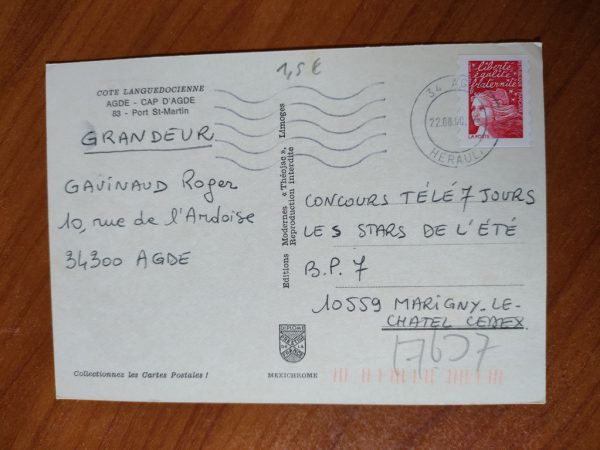 1,5 €
COTE LANGUEDOCIENNE
AGDE - CAP D'AGDE
83 - Port St-Martin
GRANDEUR
GAVINAUD Roger
10, rue de l'Ardoise
34300 AGDE
Collectionnez les Cartes Postales !
Editions Modernes « Théojac », Limoges
Reproduction interdite
MEXICHROME
34 AGDE
HERAULT
liberté
égalité
fraternité
LA POSTE
CONCOURS TÉLÉ 7 JOURS
LES STARS DE L'ÉTÉ
B.P. 7
10559 MARIGNY-LE-
CHATEL CEDEX